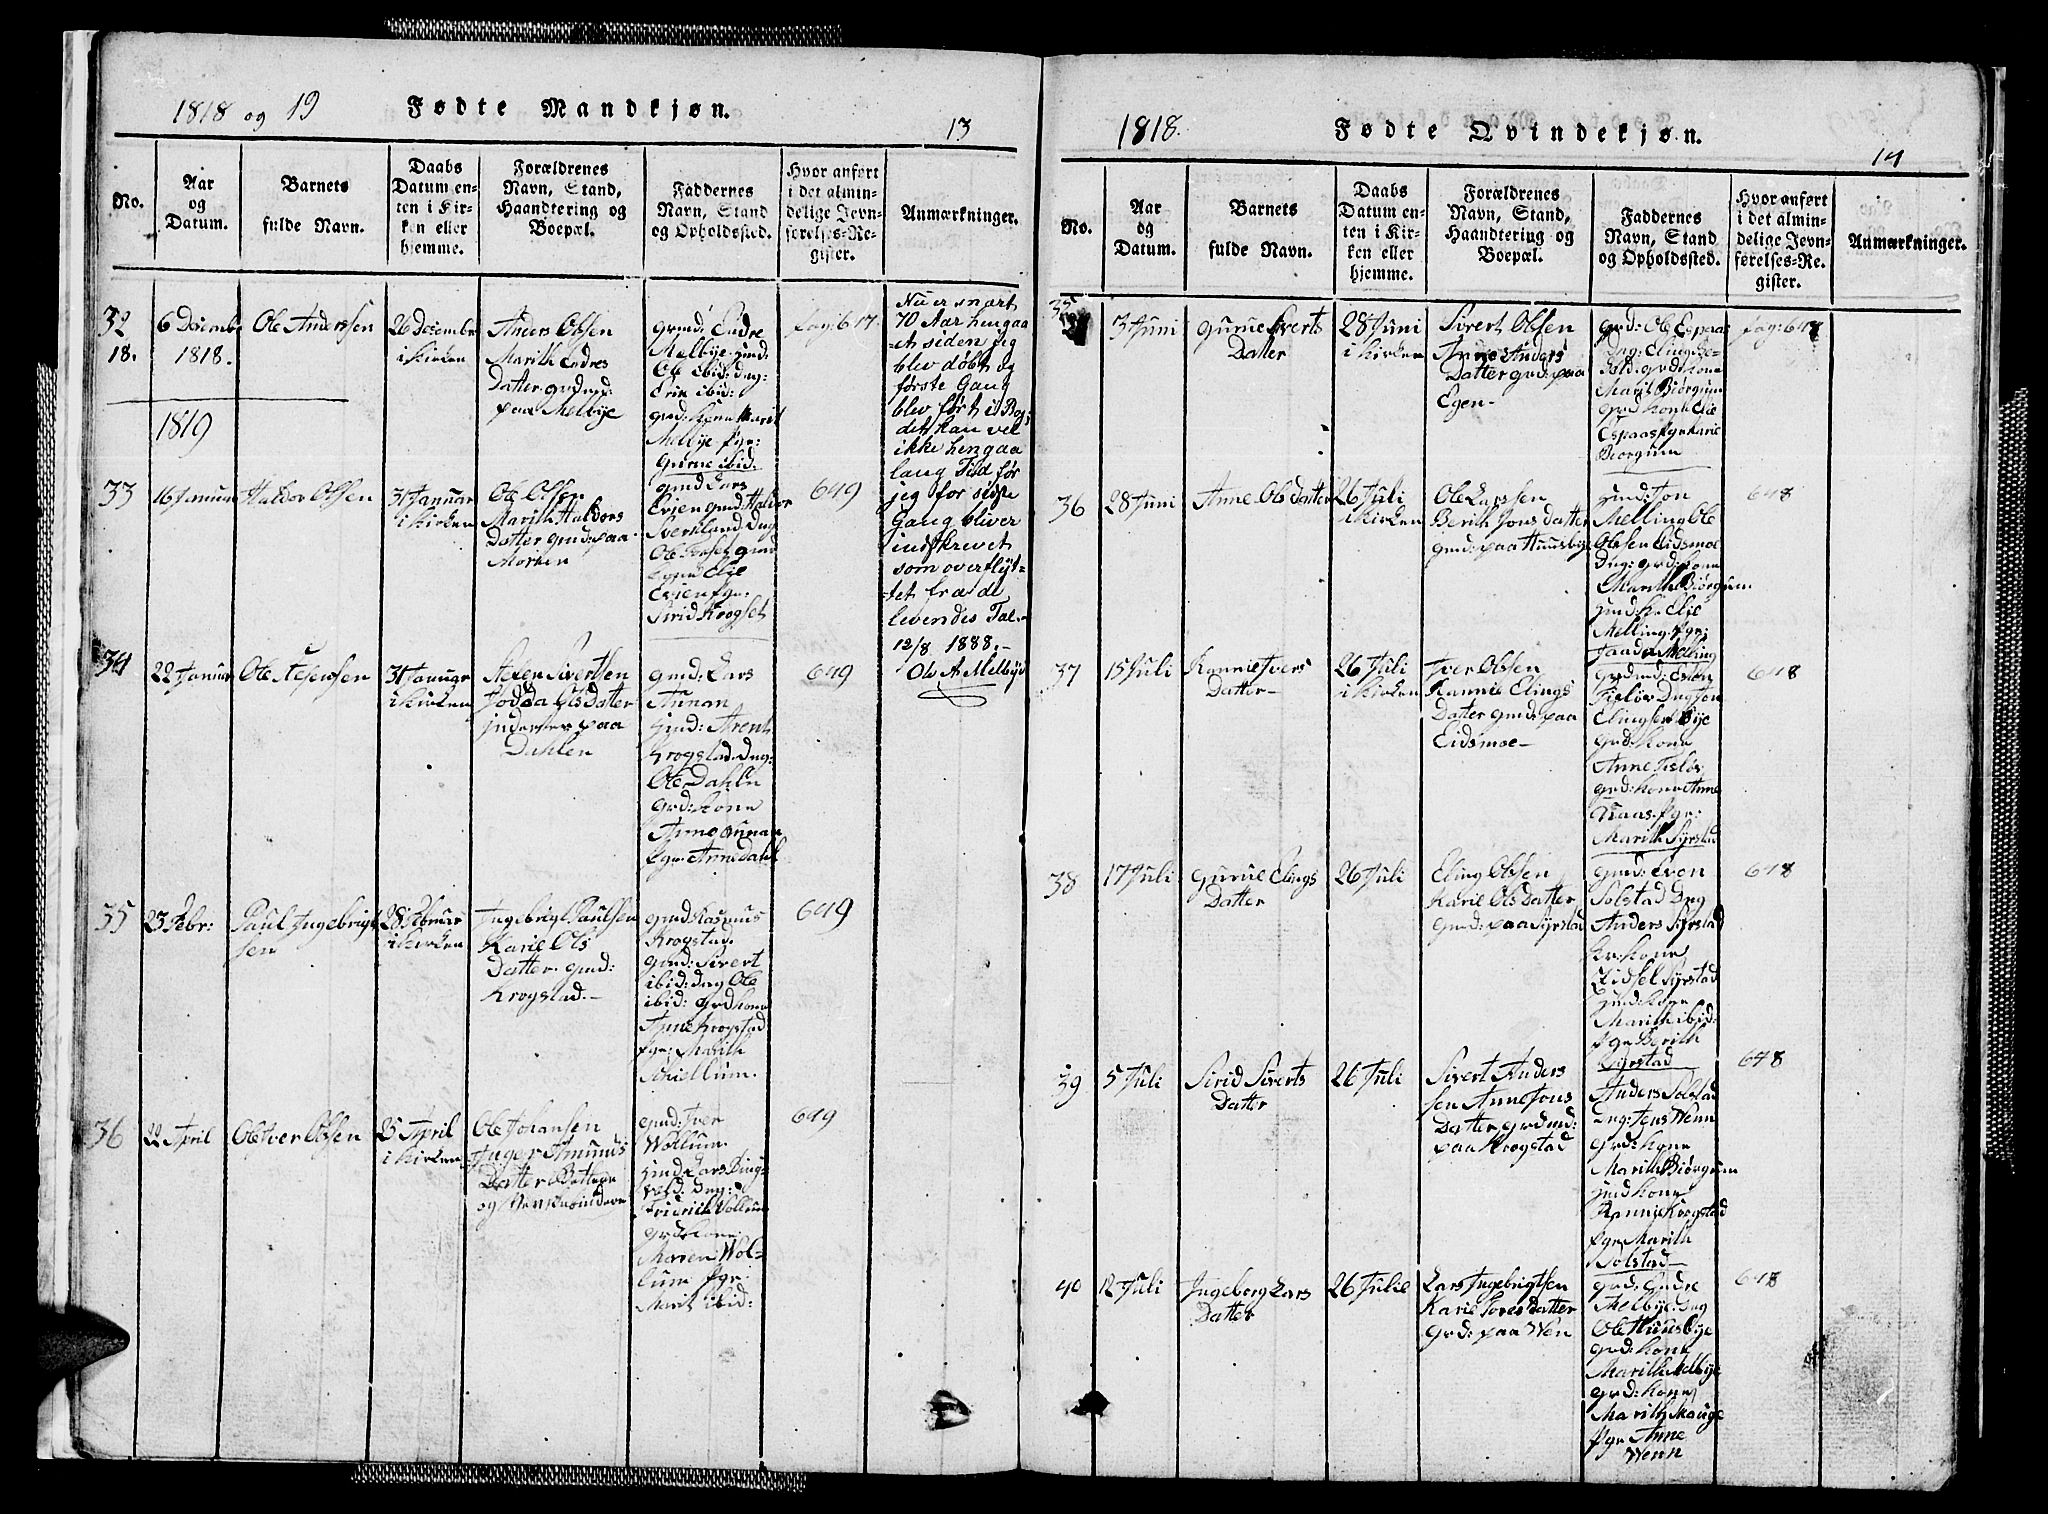 1818 og 19
Fødte Mandkjøn.
13
No.
Aar
og
Datum.
Barnets
fulde Navn.
Daabs
Datum en-
ten i Kir-
ken eller
hjemme.
Forældrenes
Navn, Stand,
Haandtering og
Boepæl.
Faddernes
Navn, Stand
og Opholdssted.
Hvor anført
i det almin-
delige Jevn-
førelses-Re-
gister.
Anmærkninger.
32
18.
6 Desembr
1818.
Ole Anderssen
26 Desembr
i Kirken
Anders Olssen
Marith Endres
Datter
paa Melbye
gmd: Endre
Melbye
Ole ibid: Dug:
ibid:
gmd: kone Marit
Melbye pge:
Gurue ibid:
fag: 647.
Nu er snart
70 Aar henga
et siden jeg
blev døbt og
første Gang
blev ført i Bog
det kan vel
ikke hengaa
lang Tid før
jeg for sidste
Gang bliver
indskrevet
som overflyt-
tet fra de
levendes Tal.
12/8 1888.
Ole A Melbye
1819
33
16 Januar
Haldor Olssen
31 Januar
i Kirken
Ole Olssen
Marith Haldors
Datter gmd: paa
Morken
gmd Lars
Evien gmd: Haldor
Sverkland Dug
Ole
Elie
Evien pge:
Sirid Krogset
649
34
22 Januar
Ole
31 Januar
i Kirken
Sivertsen
Olsdatter
paa
Dahlen
gmd: Lars
Aunan
jmd: Arent
Krogstad Dug:
Ole Dahle
grd: kone
Anne Aunan
pge: Anne Dahl
649
35
23 Febr:
Paul Ingebrigt
sen
28 Februar
i Kirken
Ingebrigt Paulsen
Karie Ols
Datter. gmd:
Krogstad.
gmd Rasmus
Krogstad.
gmd: Sivert
ibid: Dug Ole
ibid: grd kone
Anne Krogstad
pge: Marith
Schiellum.
649
36
22 April
Ole Iver Olssen
25 April
i Kirken
Ole Johansen
Inger Amunds
Datter
og
gmd: Iver
Wollum.
jmd Lars Ring-
vold. Dug:
Fridrich Wollum
grd: kone
Maren Wol-
lum pge:
Marit ibid:
649
1818.
Fødte Qvindekjøn.
14
No.
Aar
og
Datum.
Barnets
fulde Navn.
Daabs
Datum en-
ten i Kir-
ken eller
hjemme.
Forældrenes
Navn, Stand,
Haandtering og
Boepæl.
Faddernes
Navn, Stand
og Opholdssted.
Hvor anført
i det almin-
delige Jevn-
førelses-Re-
gister.
Anmærkninger.
35
3 Juni
Gurue Siverts
Datter
28 Juni
i Kirken
Sivert Olssen
Anne Anders
Datter gmd: paa
Egen
grd: Ole Espaas
Dug: Eling
grd: kone
Marit Biørgum
grd kone Elie
Espaas pge Karie
Biorgum
fag: 648
36
28 Juni
Anne Ols Datter
26 Juli
i Kirken
Ole Larssen
Berith Jons Datter
gmd: paa Huusbye
jmd: Jon
Melling Ole
Olssen Eidsmoe
Dug: grd: kone
Marith Biørgum
jmd: k: Elie
Melling. pge:
Melling
648
37
15 Juli
Rannie Ivers
Datter
26 Juli
i Kirken
Iver Olssen
Rannie Elings
Datter gmd: paa
Eidsmoe
grd: Esten
Fieløv Dug Jon
Elingsen Bye
grd: kone
Anne Fieløv
grd: kone Anne
pge:
Marith Syrstad
648
38
17 Juli
Gurue Elings
Datter
26 Juli
Eling Olssen
Karie Ols Datter
gmd: paa Syrstad
gmd: Even
Solstad Dug
Anders Syrstad
kone
Zidsel Syrstad
jmd: kone
Marith ibid:
pge Berith
Syrstad
648
39
5 Juli
Sirid Siverts
Datter
26 Juli
Sivert Anders
sen Anne Jons
Datter grd md:
paa Krogstad
Anders Solstad
Dug: Jens Wenn
grd: kone
Marith Biørgum
jmd kone
Rannie Krogstad
pge Marith
Solstad
648
40
12 Juli
Ingeborg Lars
Datter
26 Julie
Lars Ingebrigtsen
Karie Tores Datter
grd: paa Wen
grd: Endre
Melbye. Dug
Ole Huusbye
grd: kone
Marith Melbye
grd: kone
Marith Mauge
pge Anne
Wenn
648